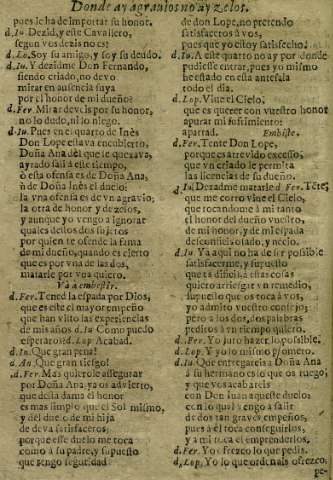 Donde ay agrauios no ay zelos.
pues le ha de importar su honor.
d. Iu. Dezid, y este Cauallero,
segun vos dezis no es?
d. Lo. Soy su amigo, y soy su deudo.
d. Iu. Y dezidme Don Fernando,
siendo criado, no deuo
mirar en ausencia suya
por el honor de mi dueño?
d. Fer. Mirar deueis por su honor,
no lo dudo, ni lo niego.
d. Iu. Pues en el quarto de Inès
Don Lope estaua encubierto,
Doña Ana dize que le
ayrado sali à este tiempo,
ò esta ofensa es de Doña Ana,
ù de Doña Inès el duelo:
la vna ofensa es de vn agrauio,
la otra de honor y de zelos,
y aunque yo vengo a ignorar
quales destos dos sujetos
por quien te ofende la fama
de mi dueño, quando es cierto
que es por vna de las dos,
matarle por voa quiero.
Và a embestir.
d. Fer. Tened la espada por Dios,
que es este el mayor empeño
que han visto las experiencias
de mis años d. Iu Como puedo
esperaros? d. Lop. Acabad.
d. Iu. Que gran pena!
d. An. Que gran riesgo!
d. Fer. Mas quierole assegurar
por Doña Ana, ya os aduierto,
que desta dama el honor
es mas limpio que el Sol mismo,
y del duelo de mi hija
de deua satisfaceros;
porque esse duelo me toca
como à su padre, y supuesto
que tengo seguridad
de don Lope, no pretendo
satisfaceros à vos,
pues que yo estoy satisfecho.
d. Iu. A este quarto no ay por donde
pudiesse entrar, pues yo mismo
he estado en esta antesala
todo el dia.
d. Lop. Viue el Cielo,
que es querer con vuestro honor
apurar mi sufrimiento:
apartad. Embiste.
d. Fer. Tente Don Lope,
porque es atreuido excesso,
que vn criado le permita
las licencias de su dueño.
d. Iu. Dexadme matarle d. Fer. Tẽte,
que me corro viue el Cielo,
que tocandome à mi tanto
el honor del dueño vuestro,
de mi honor, y de mi espada
desconfieis osado, y necio.
d. Iu. Ya aqui no ha de ser possible
satisfacerme, y supuesto
que es dificil à estas cosas
quiero arriesgar vn remedio,
supuesto que os toca à vos,
yo admito vuestro concierto;
pero a los dos, dos palabras
pediros à vn tiempo quiero.
d. Fer. Yo juro hazer lo possible.
d. Lop. Y yo lo mismo prometo.
d. Iu. Que entregareis a Doña Ana
à su hermano es lo que os ruego;
y que vos acabareis
con Don Iuan aqueste duelo:
con lo qual vengo a salir
de dos tan graues empeños,
pues à èl toca conseguirlos,
y a mi toca el emprenderlos.
d. Fer. Yo ofrezco lo que pedis.
d. Lop. Yo lo que ordenais ofrezco.
pe-